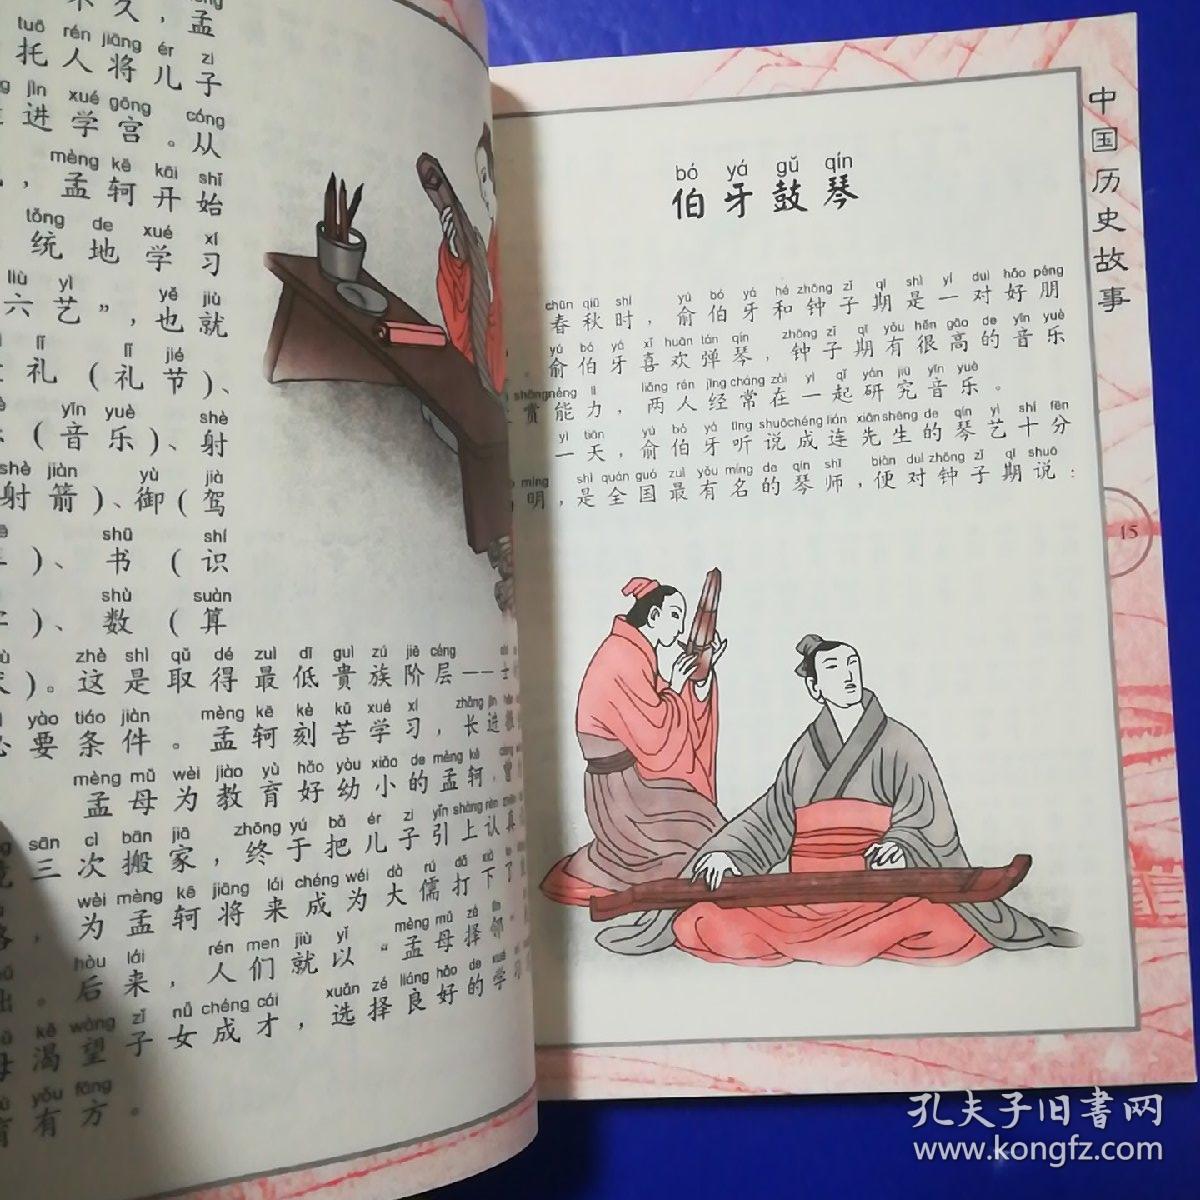 久，孟
tuō rén jiāng ér zi
托人将儿子
jìn xué gōng cóng
进学宫。从
mèng kē kāi shǐ
，孟轲开始
tǒng de xué xí
统地学习
liù yì yě jiù
六艺”，也就
lǐ lǐ jié
礼（礼节）、
yīn yuè shè
（音乐）、射
shè jiàn yù jià
射箭）、御（驾
shū shí
）、书（识
shù suàn
）、数（算
zhè shì qǔ dé zuì dī guì zú jiē céng
）。这是取得最低贵族阶层——士
yào tiáo jiàn mèng kē kè kǔ xué xí zhǎng jìn
必要条件。孟轲刻苦学习，长进
mèng mǔ wèi jiào yù hǎo yòu xiǎo de mèng kē
孟母为教育好幼小的孟轲，曾
sān cì bān jiā zhōng yú bǎ ér zi yǐn shàng rèn zhēn
三次搬家，终于把儿子引上认真
wèi mèng kē jiāng lái chéng wéi dà rú dǎ xià
，为孟轲将来成为大儒打下了
hòu lái rén men jiù yǐ mèng mǔ zé lín
。后来，人们就以“孟母择邻”
kě wàng zǐ nǚ chéng cái xuǎn zé liáng hǎo de xué
渴望子女成才，选择良好的学习
yǒu fāng
有方。
中国历史故事
bó yá gǔ qín
伯牙鼓琴
chūn qiū shí yú bó yá hé zhōng zǐ qī shì yí duì hǎo péng
春秋时，俞伯牙和钟子期是一对好朋
yú bó yá xǐ huān tán qín zhōng zǐ qī yǒu hěn gāo de yīn yuè
。俞伯牙喜欢弹琴，钟子期有很高的音乐
shǎng néng lì liǎng rén jīng cháng zài yì qǐ yán jiū yīn yuè
赏能力，两人经常在一起研究音乐。
yì tiān yú bó yá tīng shuō chéng lián xiān shēng de qín yì shí fēn
一天，俞伯牙听说成连先生的琴艺十分
míng shì quán guó zuì yǒu míng de qín shī biàn duì zhōng zǐ qī shuō
明，是全国最有名的琴师，便对钟子期说：
15
孔夫子旧书网
www.kongfz.com